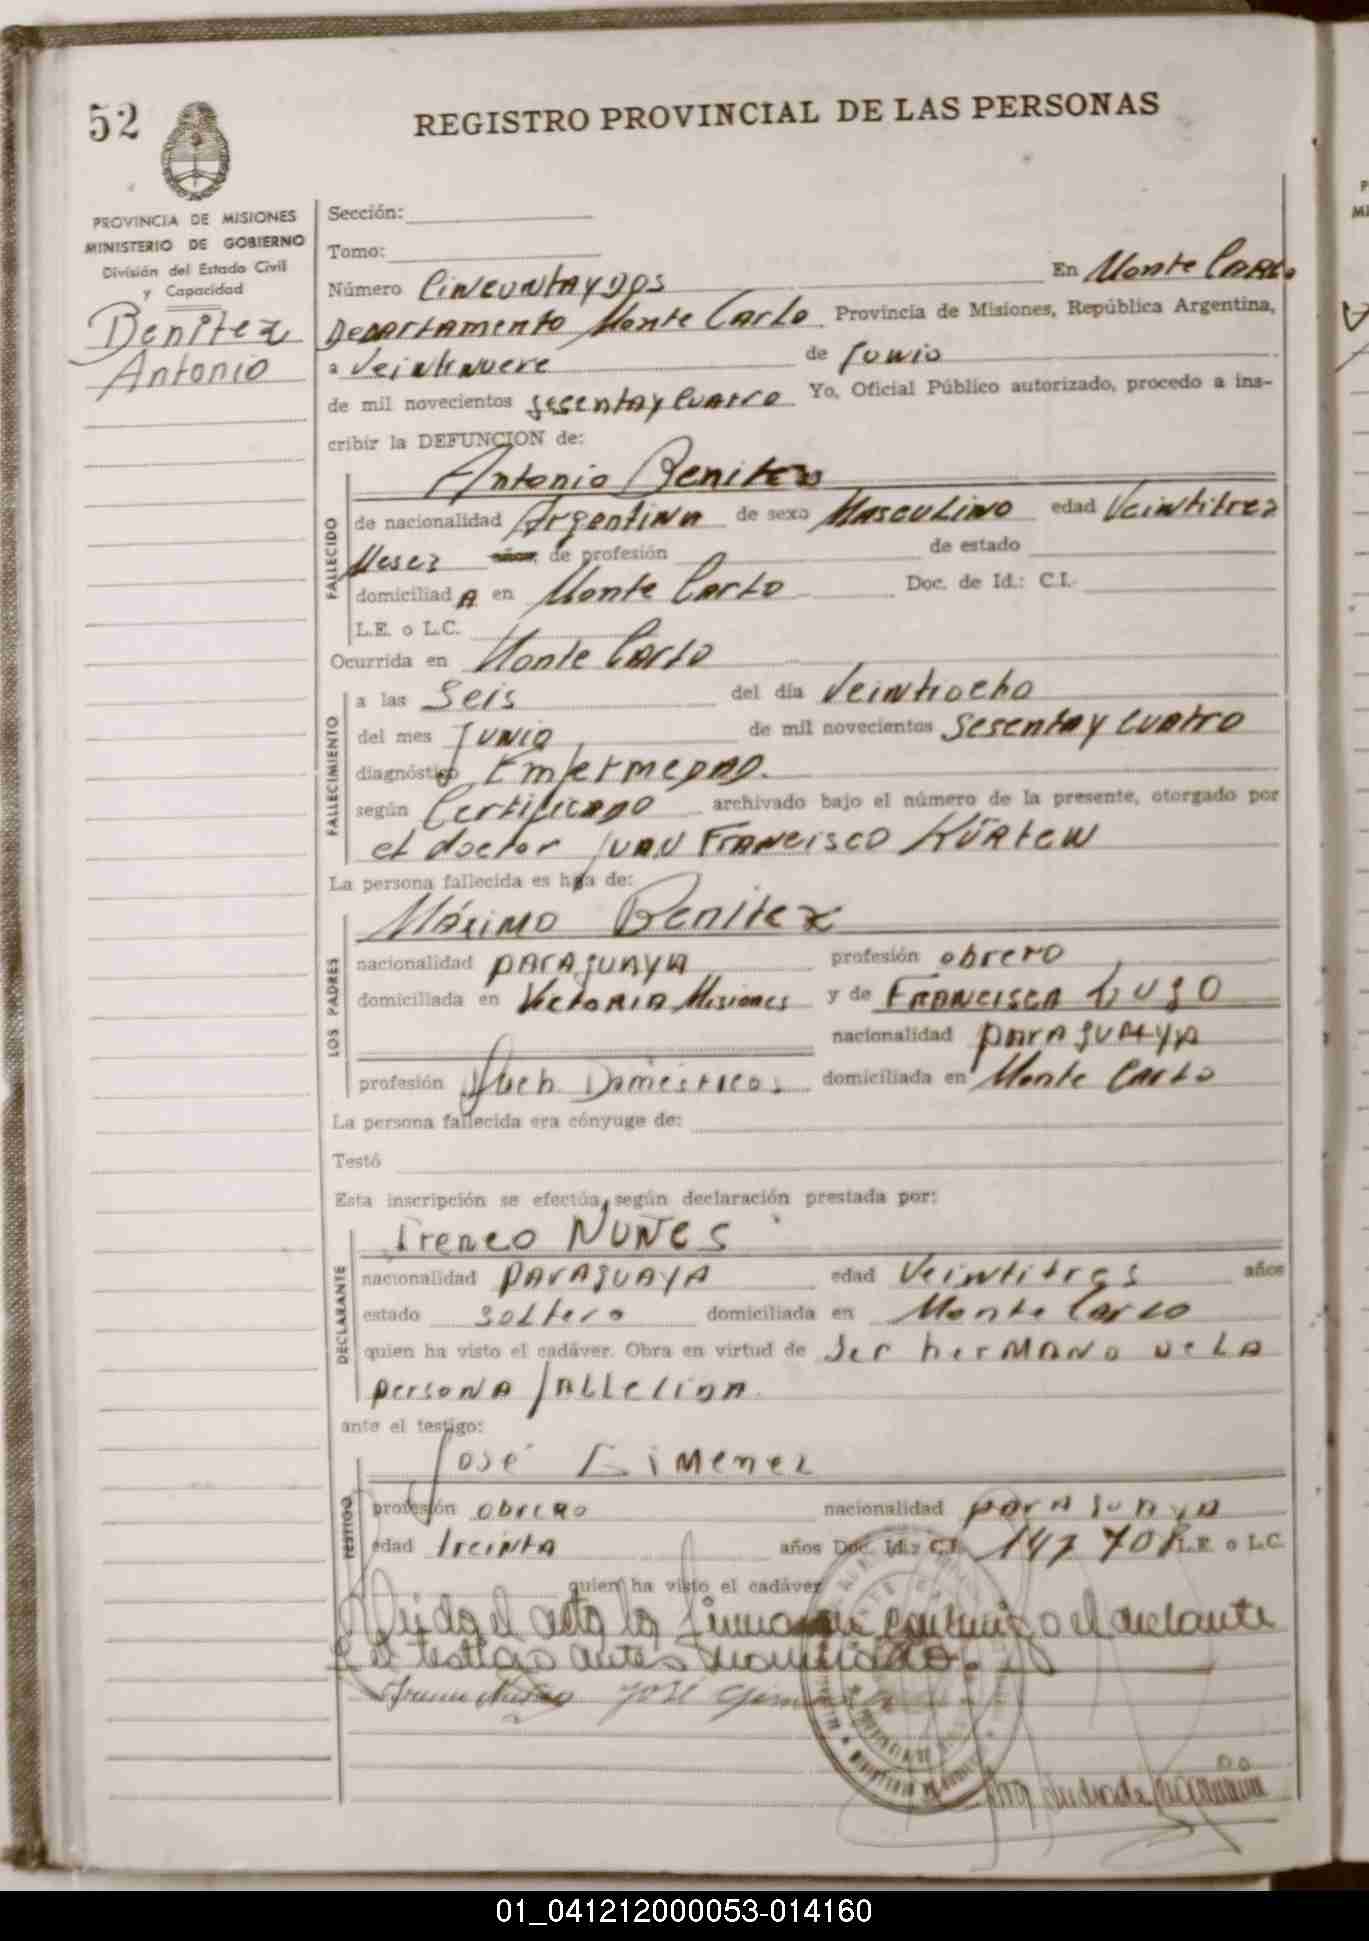 52
REGISTRO PROVINCIAL DE LAS PERSONAS
PROVINCIA DE MISIONES
MINISTERIO DE GOBIERNO
División del Estado Civil
y Capacidad
Benitez
Antonio
Sección:
Tomo:
Número Cincuntaydos En Monte Carlo
Departamento Monte Carlo Provincia de Misiones, República Argentina,
a Veintinueve de Junio
de mil novecientos sesentay Cuatro Yo, Oficial Público autorizado, procedo a ins-
cribir la DEFUNCION de:
Antonio Benitez
FALLECIDO
de nacionalidad Argentina de sexo Masculino edad Veintitres
Meses años, de profesión de estado
domiciliad a en Monte Carlo Doc. de Id.: C.I.
L.E. o L.C.
Ocurrida en Monte Carlo
FALLECIMIENTO
a las Seis del día Veintiocho
del mes Junio de mil novecientos Sesentay Cuatro
diagnóstico Enfermedad.
según Certificado archivado bajo el número de la presente, otorgado por
el doctor Juan Francisco Kürten
La persona fallecida es hija de:
LOS PADRES
Máximo Benitez
nacionalidad paraguaya profesión obrero
domiciliada en Victoria Misiones y de Francisca Lugo
nacionalidad paraguaya
profesión Domésticos domiciliada en Monte Carlo
La persona fallecida era cónyuge de:
Testó
Esta inscripción se efectúa según declaración prestada por:
DECLARANTE
Ireneo Nuñes
nacionalidad paraguaya edad Veintitres años
estado soltero domiciliada en Monte Carlo
quien ha visto el cadáver. Obra en virtud de Ser hermano de La
persona fallecida.
ante el testigo:
TESTIGO
José Gimenez
profesión obrero nacionalidad paraguaya
edad treinta años Doc. Id.: C.I. L.E. o L.C.
quien ha visto el cadáver
Leida el acta la firman conmigo el declarante
y el testigo antes nombrado.
José
01_041212000053-014160